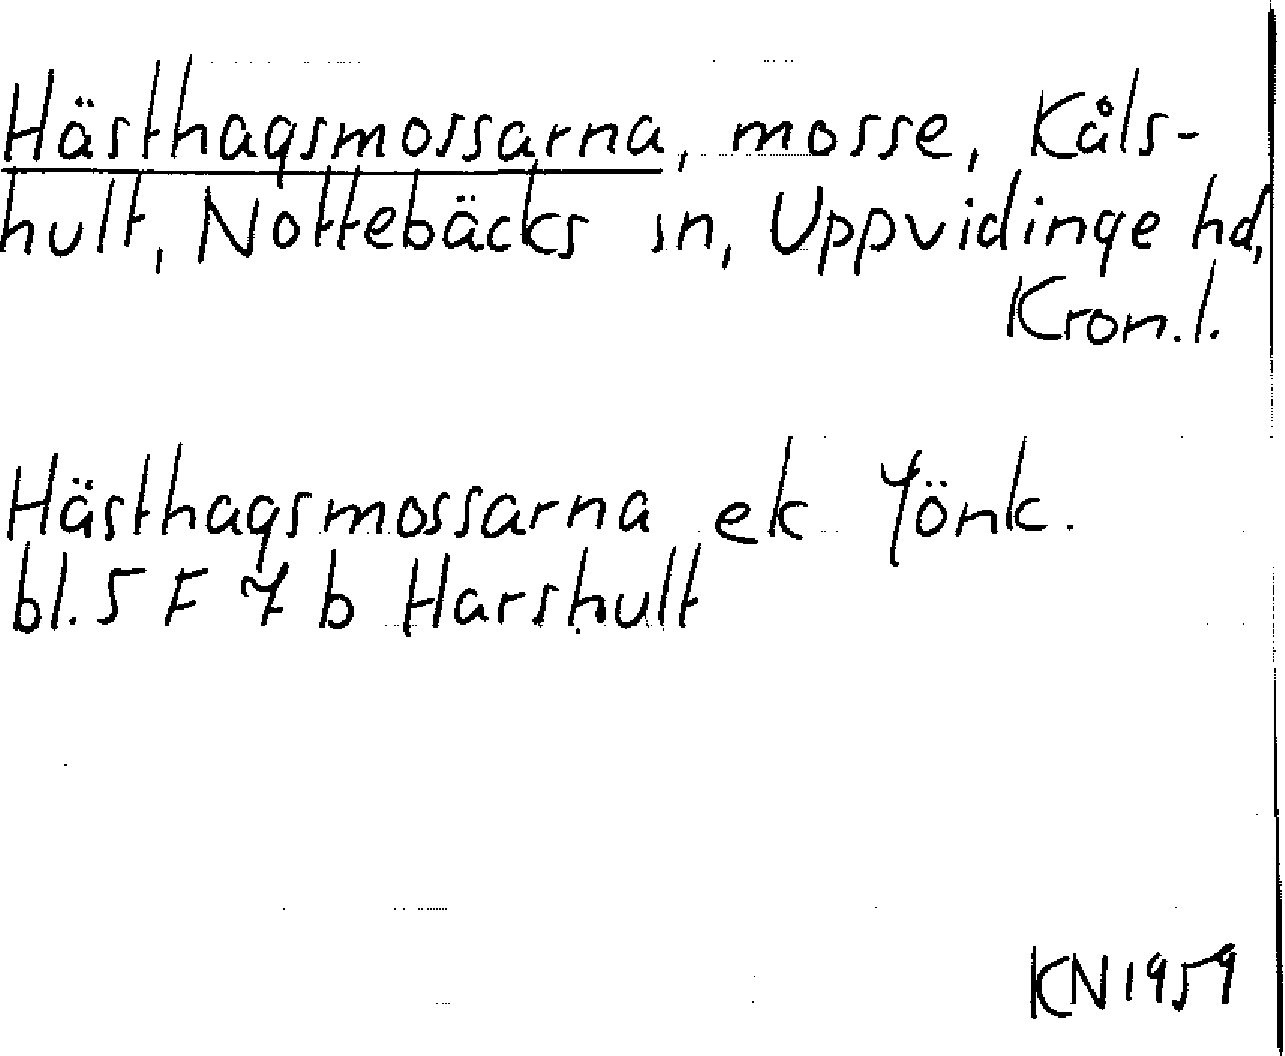 Hästhagsmossarna, mosse, Kåls-
hult, Nottebäcks sn, Uppvidinge hd,
Kron.l.
Hästhagsmossarna ek Jönk.
bl. 5 F 7 b Harshult
KN 1959